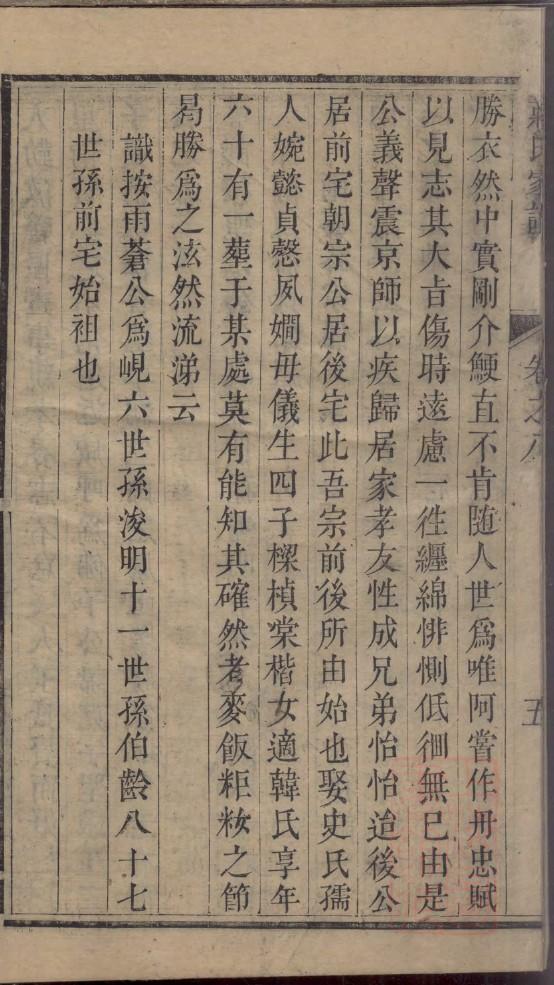 氏家
卷之八
五
勝衣然中實剛介鯁直不肯随人世爲唯阿嘗作冊忠賦
以見志其大吉傷時遠慮一徃纒綿悱惻低徊無已由是
公義聲震京師以疾歸居家孝友性成兄弟怡怡迨後公
居前宅朝宗公居後宅此吾宗前後所由始也娶史氏孺
人婉懿貞慤夙嫺毋儀生四子樑楨棠楷女適韓氏享年
六十有一塟于某處莫有能知其確然者麥飯粔籹之節
曷勝爲之泫然流涕云
識按雨蒼公爲峴六世孫浚明十一世孫伯齡八十七
世孫前宅始祖也